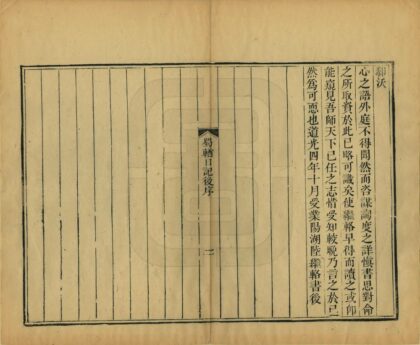 沃
心之語外庭不得聞然而咨謀詢度之詳慎書思對命
之所取資於此已略可識矣使繼輅早得而讀之或仰
能窺見吾師天下已任之志惜受知較晚乃言之於已
然爲可慝也道光四年十月受業陽湖陸繼輅書後
蜀輶日記後序